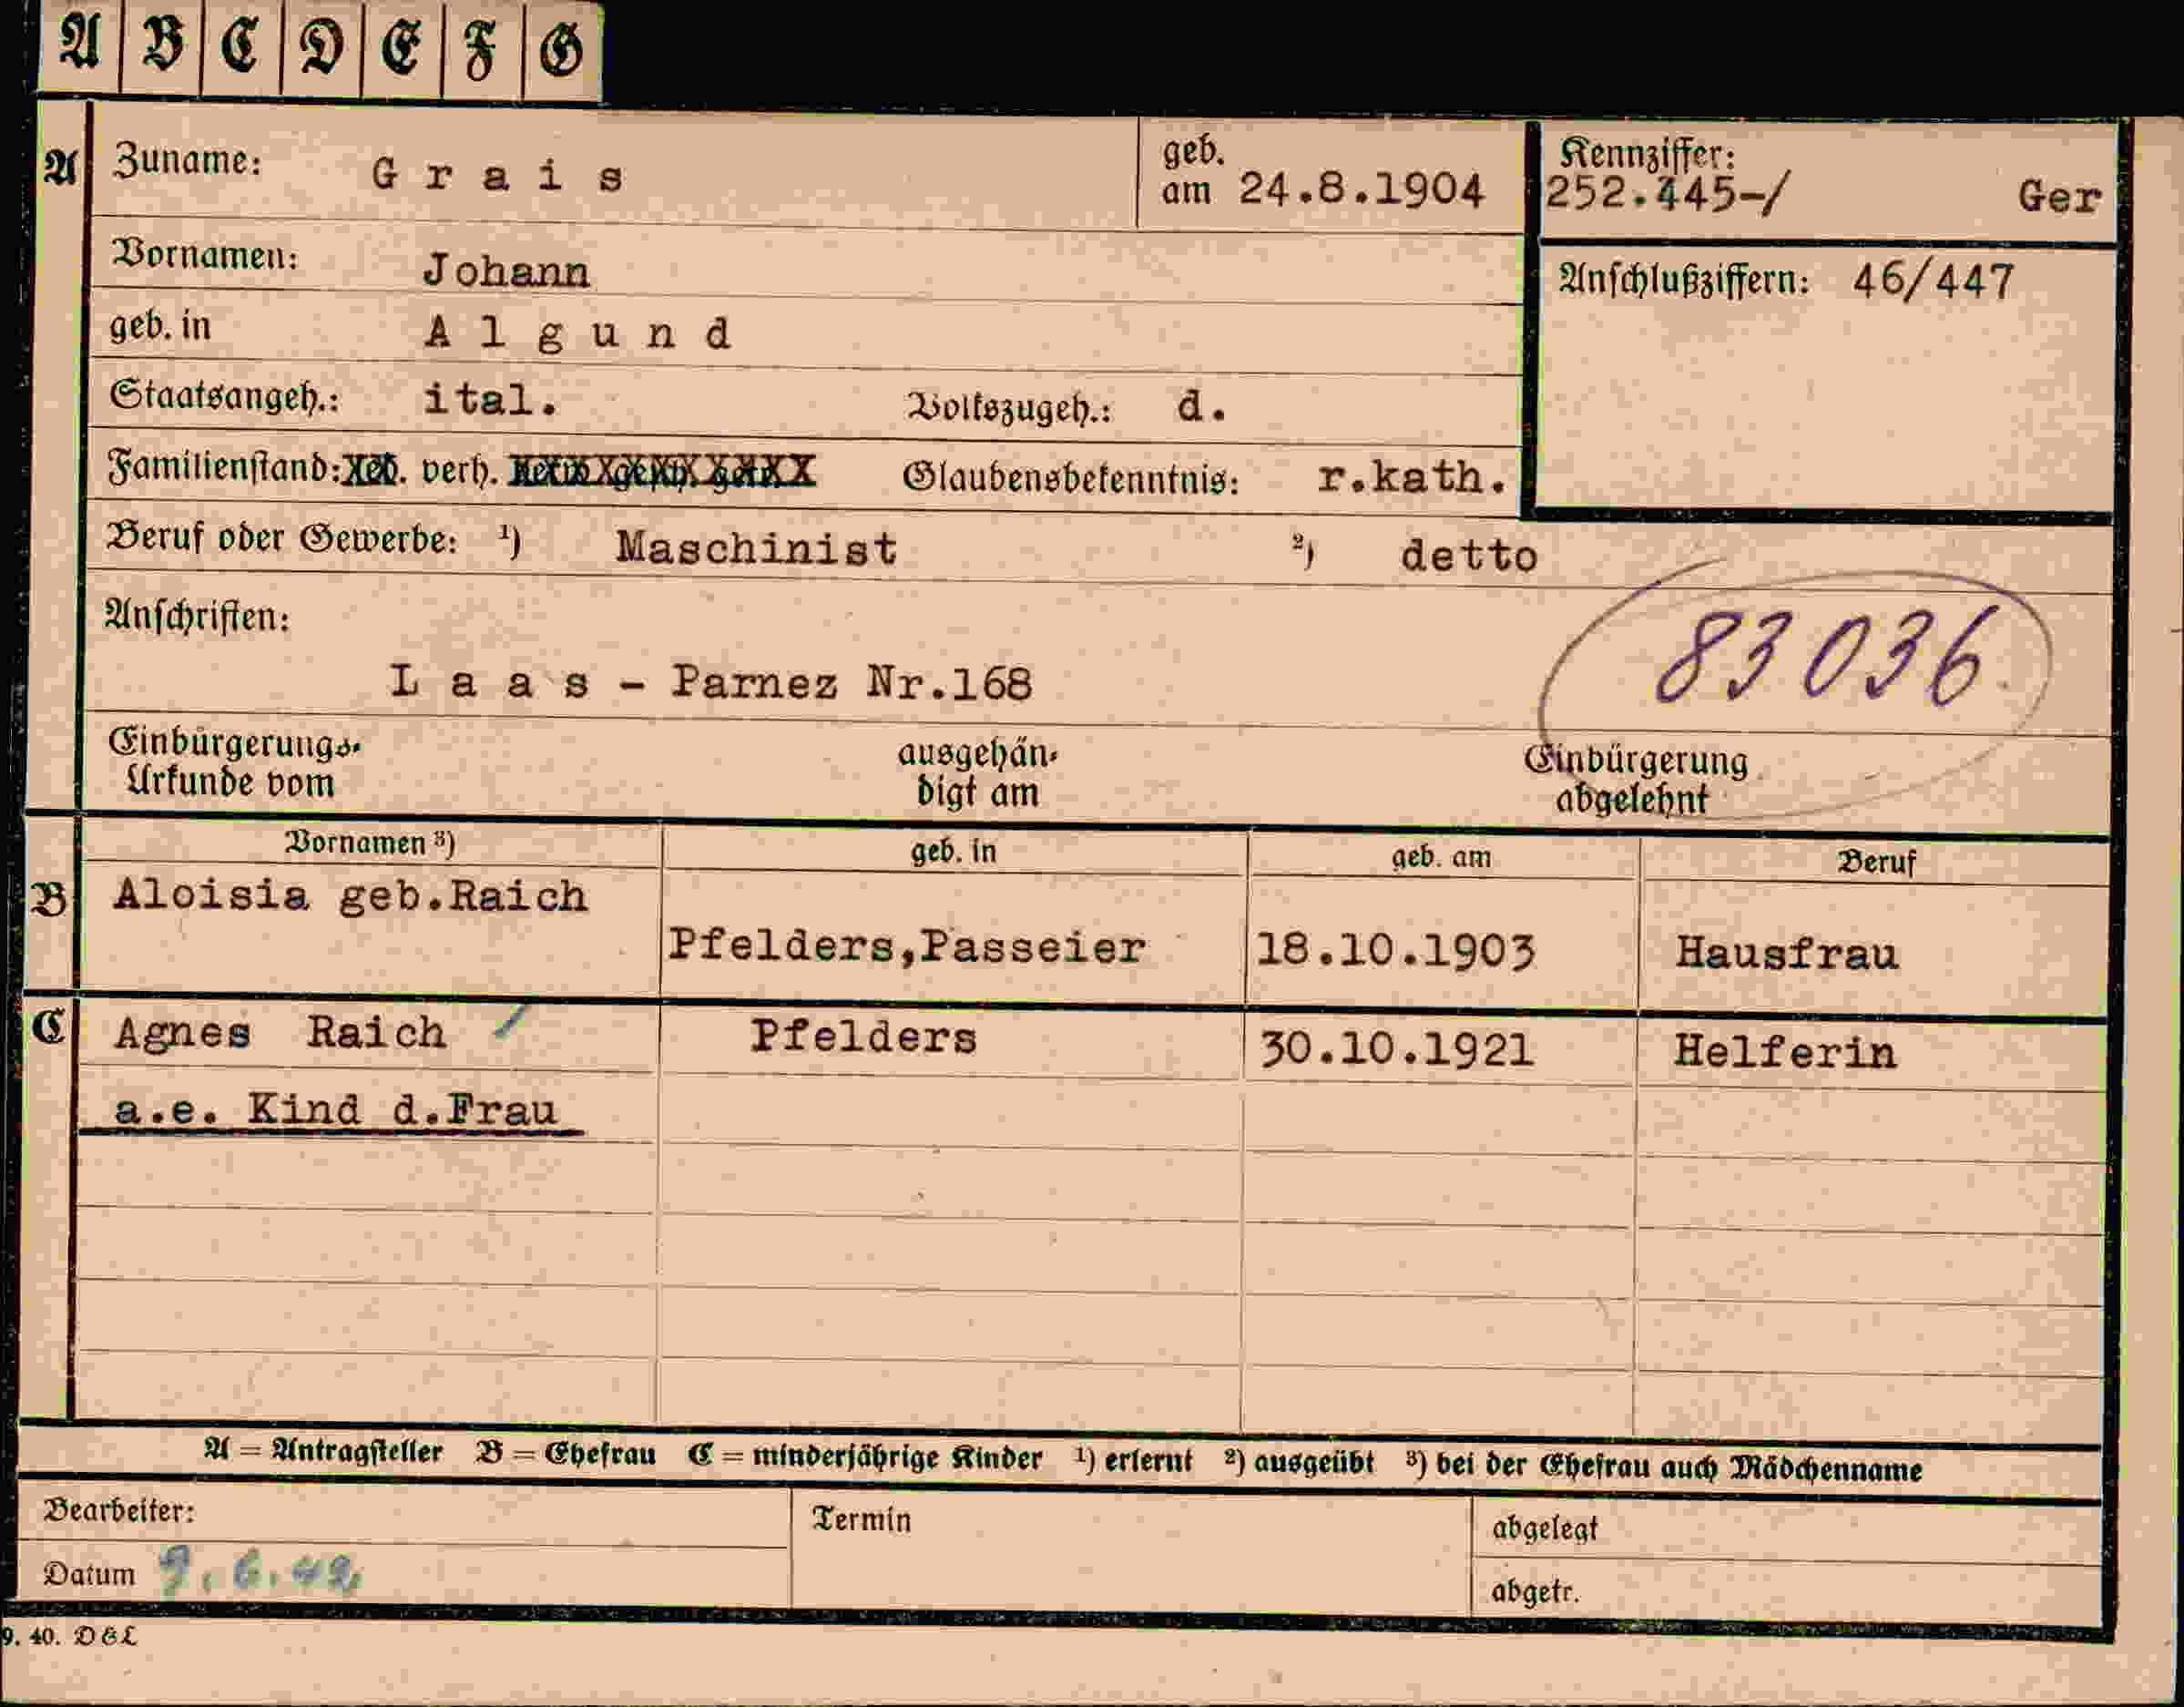 A B C D E F G
A Zuname: Grais geb. am 24.8.1904 Kennziffer: 252.445-/ Ger
Vornamen: Johann Anschlußziffern: 46/447
geb. in Algund
Staatsangeh.: ital. Volkszugeh.: d.
Familienstand: verh. Glaubensbekenntnis: r.kath.
Beruf oder Gewerbe: ¹) Maschinist ²) detto
Anschriften:
83036
Laas - Parnez Nr.168
Einbürgerungs- ausgehän- Einbürgerung
Urkunde vom digt am abgelehnt
Vornamen ³) geb. in geb. am Beruf
B Aloisia geb.Raich
Pfelders,Passeier 18.10.1903 Hausfrau
C Agnes Raich Pfelders 30.10.1921 Helferin
a.e. Kind d.Frau
A = Antragsteller B = Ehefrau C = minderjährige Kinder ¹) erlernt ²) ausgeübt ³) bei der Ehefrau auch Mädchenname
Bearbeiter: Termin abgelegt
Datum 9.6.42 abgetr.
9. 40. DGL